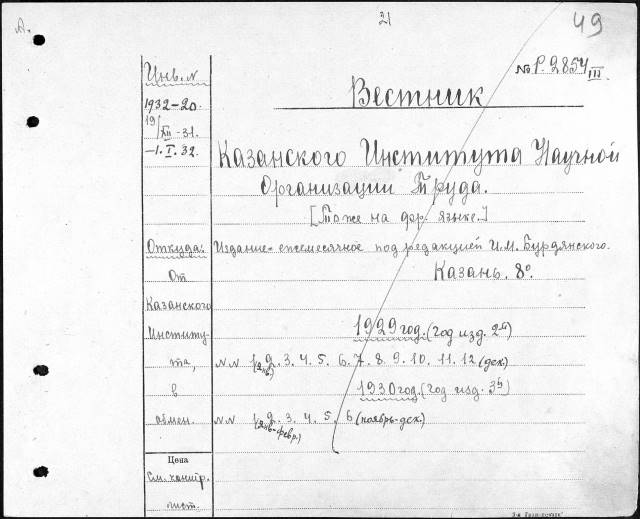 А.
31
49
Инв. N
№ Р. 2854 III
Вестник
1932-20.
19/XII-31.
-1.I.32.
Казанского Института Научной
Организации Труда.
[То же на фр. языке.]
Откуда:
Издание ежемесячное под редакцией И.М. Бурдянского.
От
Казань. 8°.
Казанского
Институ-
1929 год. (год изд. 2й)
та,
NN 1. 2. 3. 4. 5. 6. 7. 8. 9. 10. 11. 12 (дек.)
(янв.)
в
1930 год. (год изд. 3й)
обмен.
NN 1. 2. 3. 4. 5. 6 (ноябрь-дек.)
(янв-февр.)
Цена
См. контр.
лист.